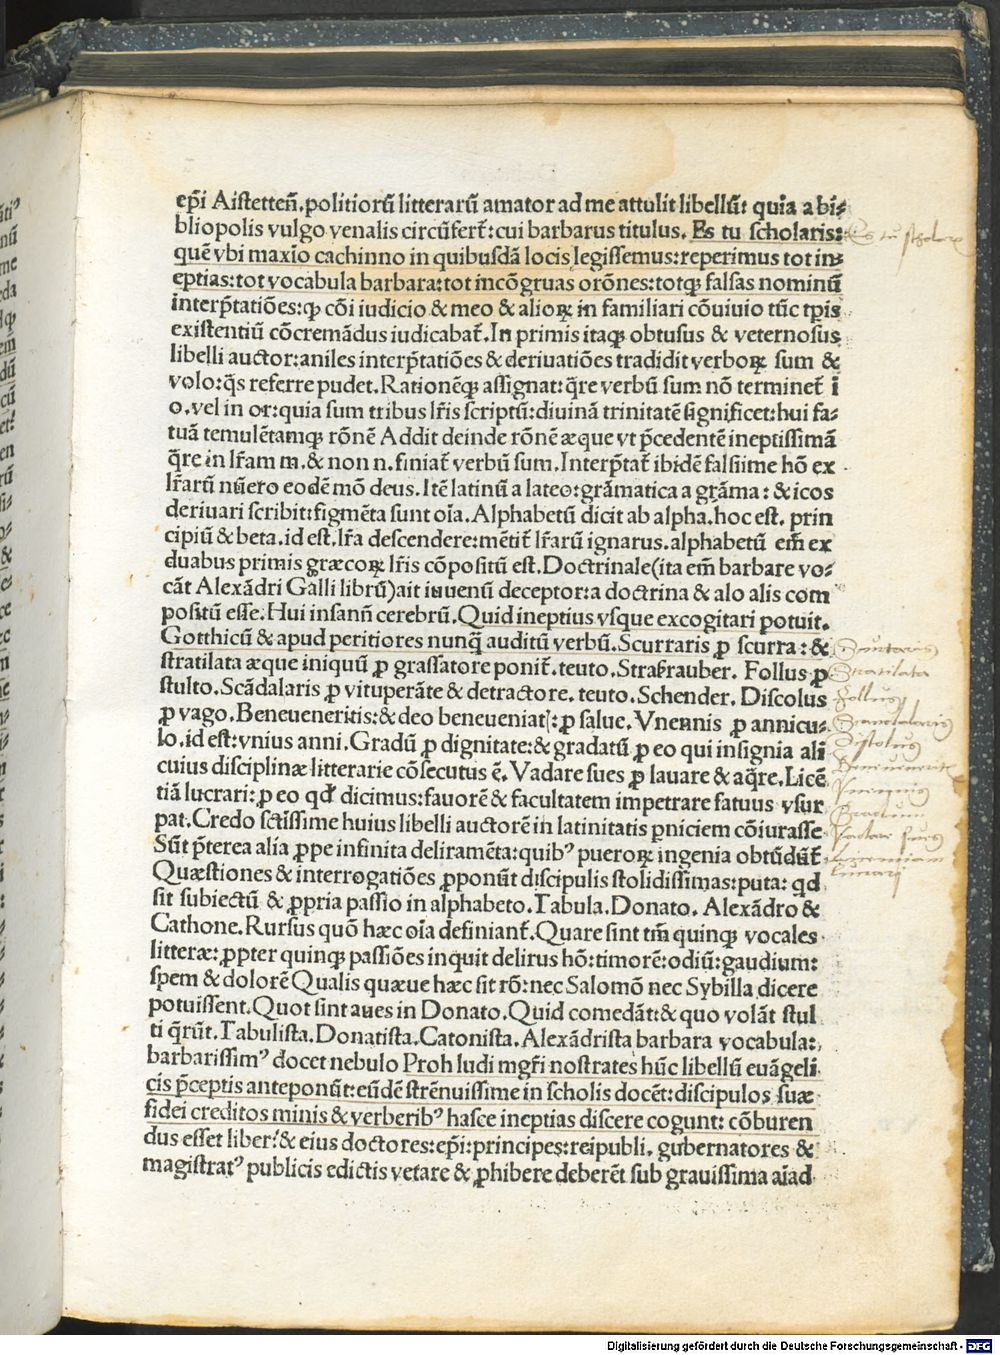 ep̄i Aiſtetten̄.politiorū litterarū amator ad me attulit libellū: quia a bi⸗
bliopolis vulgo venalis circūfert̄:cui barbarus titulus. Es tu ſcholaris:
quē vbi maxīo cachinno in quibuſdā locis legiſſemus:reperimus tot in⸗
eptias:tot vocabula barbara:tot incōgruas orōnes:totqꝫ falſas nominū
interp̄tatiōes:ꝙ cōi iudicio & meo & alioꝝ in familiari cōuiuio tūc tp̄is
exiſtentiū cōcremādus iudicabat̄.In primis itaqꝫ obtuſus & veternoſus
libelli auctor:aniles interp̄tatiōes & deriuatiōes tradidit verboꝝ ſum &
volo:q̄s referre pudet.Rationēqꝫ aſſignat:q̄re verbū ſum nō terminet̄ ī
o.vel in or:quia ſum tribus lr̄is ſcriptū:diuinā trinitatē ſignificet:hui fa⸗
tuā temulētamqꝫ rōnē Addit deinde rōnē æque vt p̄cedentē ineptiſſimā
q̄re in lr̄am m.& non n.finiat̄ verbū ſum.Interp̄tat̄ ibidē falſiime hō ex
lr̄arū nūero eodē mō deus.Itē latinū a lateo:grāmatica a grāma:& icos
deriuari ſcribit:figmēta ſunt oīa.Alphabetū dicit ab alpha.hoc eſt. prin
cipiū & beta.id eſt.lr̄a deſcendere:mētit̄ lr̄arū ignarus.alphabetū em̄ ex
duabus primis græcoꝝ lr̄is cōpoſitū eſt.Doctrinale(ita em̄ barbare vo⸗
cāt Alexādri Galli librū)ait iuuenū deceptor:a doctrina & alo alis com
poſitū eſſe.Hui inſanū cerebrū.Quid ineptius vſque excogitari potuit.
Gotthicū & apud peritiores nunq̄ auditū verbū.Scurraris ꝓ ſcurra:&
ſtratilata æque iniquū ꝓ graſſatore ponit̄.teuto.Straſrauber. Follus ꝓ
ſtulto.Scādalaris ꝓ vituperāte & detractore.teuto.Schender.Diſcolus
ꝓ vago.Beneueneritis:& deo beneueniat:ꝓ ſalue.Vnennis ꝓ annicu⸗
lo.id eſt:vnius anni.Gradū ꝓ dignitate:& gradatū ꝓ eo qui inſignia ali
cuius diſciplinæ litterarie cōſecutus ē.Vadare ſues ꝓ lauare & aq̄re.Licē
tiā lucrari:ꝓ eo qđ dicimus:fauorē & facultatem impetrare fatuus vſur
pat.Credo ſctīſſime huius libelli auctorē in latinitatis ꝑniciem cōiuraſſe
Sūt p̄terea alia ꝓpe infinita deliramēta:quibꝰ pueroꝝ ingenia obtūdūt̄
Quæſtiones & interrogatiōes ꝓponūt diſcipulis ſtolidiſſimas:puta: qd
ſit ſubiectū & ꝓpria paſſio in alphabeto.Tabula.Donato. Alexādro &
Cathone.Rurſus quō hæc oīa definiant̄.Quare ſint tm̄ quinqꝫ vocales
litteræ:ꝓpter quinqꝫ paſſiōes inquit delirus hō:timorē:odiū:gaudium:
ſpem & dolorē Qualis quæue hæc ſit rō:nec Salomō nec Sybilla dicere
potuiſſent.Quot ſint aues in Donato.Quid comedāt:& quo volāt ſtul
ti q̄rūt.Tabuliſta.Donatiſta.Catoniſta.Alexādriſta barbara vocabula:
barbariſſimꝰ docet nebulo Proh ludi mgr̄i noſtrates hūc libellū euāgeli
cis p̄ceptis anteponūt:eūdē ſtrēnuiſſime in ſcholis docēt:diſcipulos ſuæ
fidei creditos minis & verberibꝰ haſce ineptias diſcere cogunt: cōburen
dus eſſet liber:& eius doctores:ep̄i:principes:reipubli. gubernatores &
magiſtratꝰ publicis edictis vetare & ꝓhibere deberēt ſub grauiſſima aīad
Es tu scholaris
Scurraris
Stratilata
Follus
Scandalaris
Discolus
Beneueneritis
Vnennis
Gradum
Vadare sues
Licenciam
lucrari
Digitalisierung gefördert durch die Deutsche Forschungsgemeinschaft - DFG